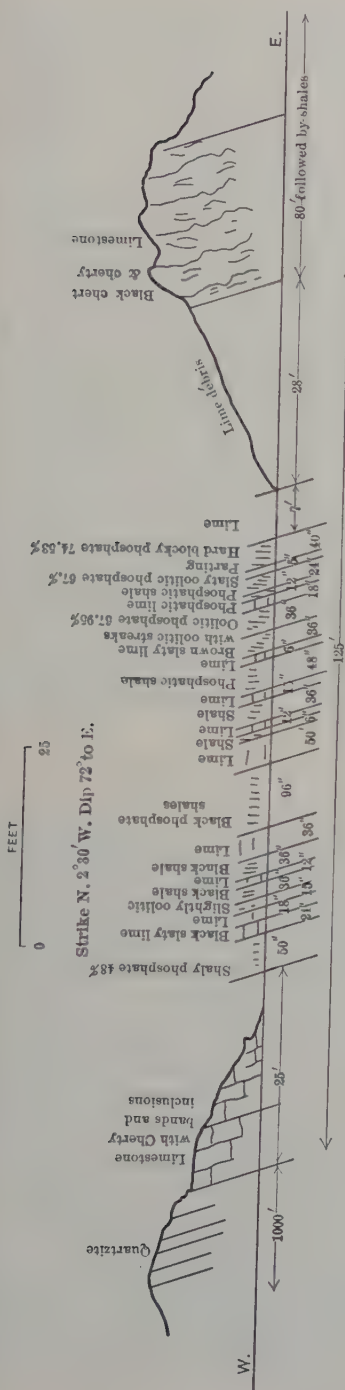 FEET
0 25
Strike N. 2°30' W. Dip 72° to E.
W.
E.
Quartzite
Limestone
with Cherty
bands and
inclusions
Shaly phosphate 48%
Black slaty lime
Lime
Slightly oolitic
Black shale
Lime
Black shale
Lime
Black phosphate
shales
Lime
Shale
Lime
Shale
Lime
Phosphatic shale
Lime
Brown slaty lime
with oolitic streaks
Oolitic phosphate 67,95%
Phosphatic lime
Phosphatic shale
Slaty oolitic phosphate 67,%
Parting
Hard blocky phosphate 74,53%
Lime
Lime debris
Black chert
& cherty
Limestone
1000'
25'
50"
21"
18"
15"
30"
12"
36"
36"
96"
50"
6"
12"
36"
48"
6"
36"
36"
18"
12"
24"
5"
40"
7'
28'
80' followed by shales
125'